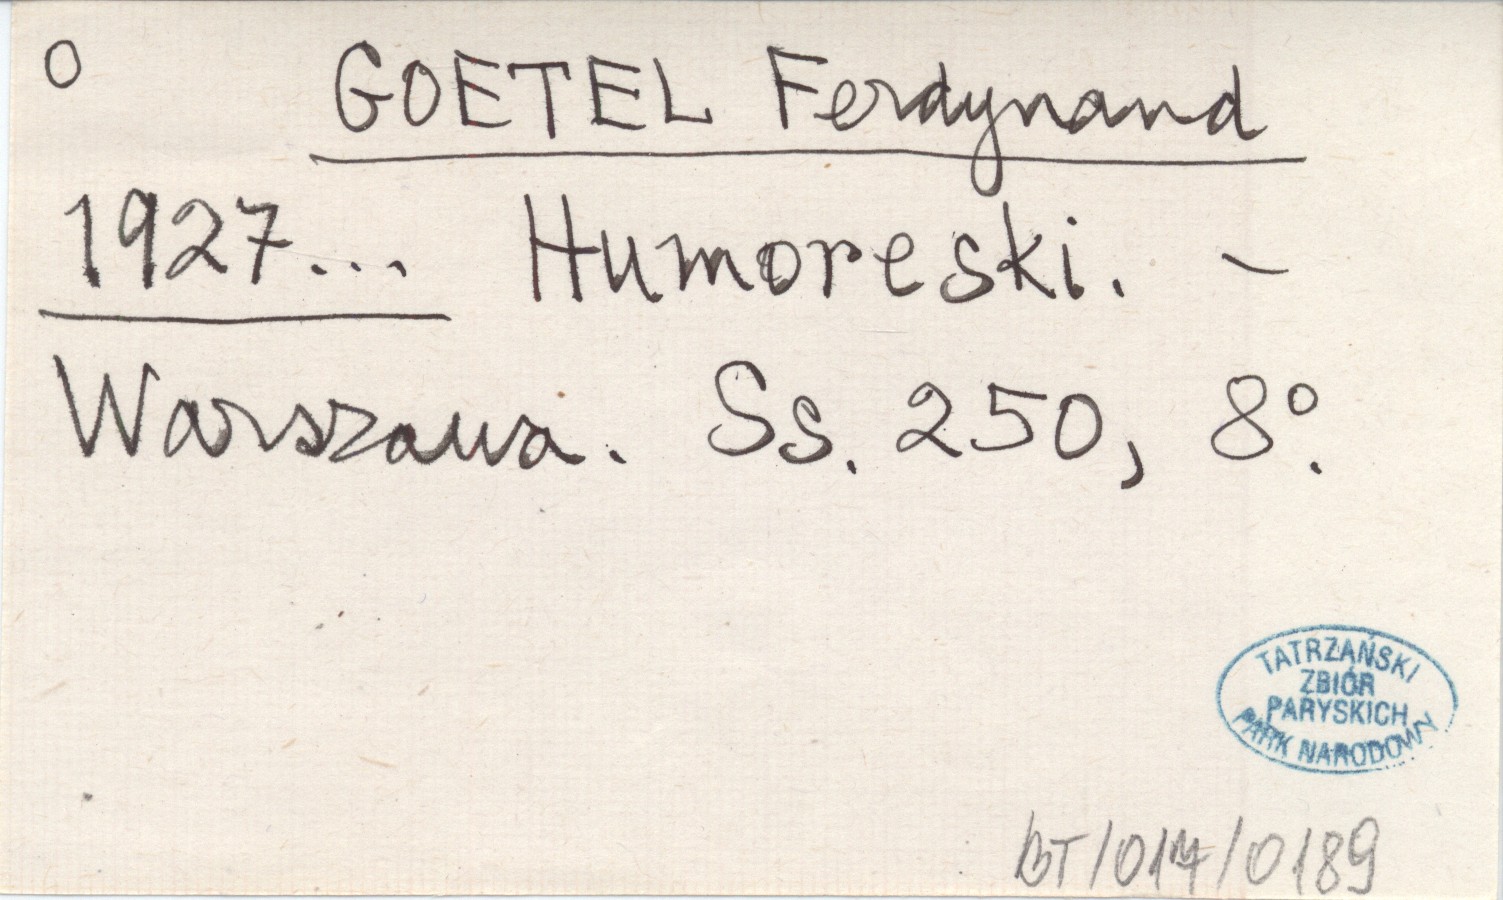 O GOETEL Ferdynand
1927... Humoreski. –
Warszawa. Ss. 250, 8°.
TATRZAŃSKI
ZBIÓR
PARYSKICH
PARK NARODOWY
BT/017/0189